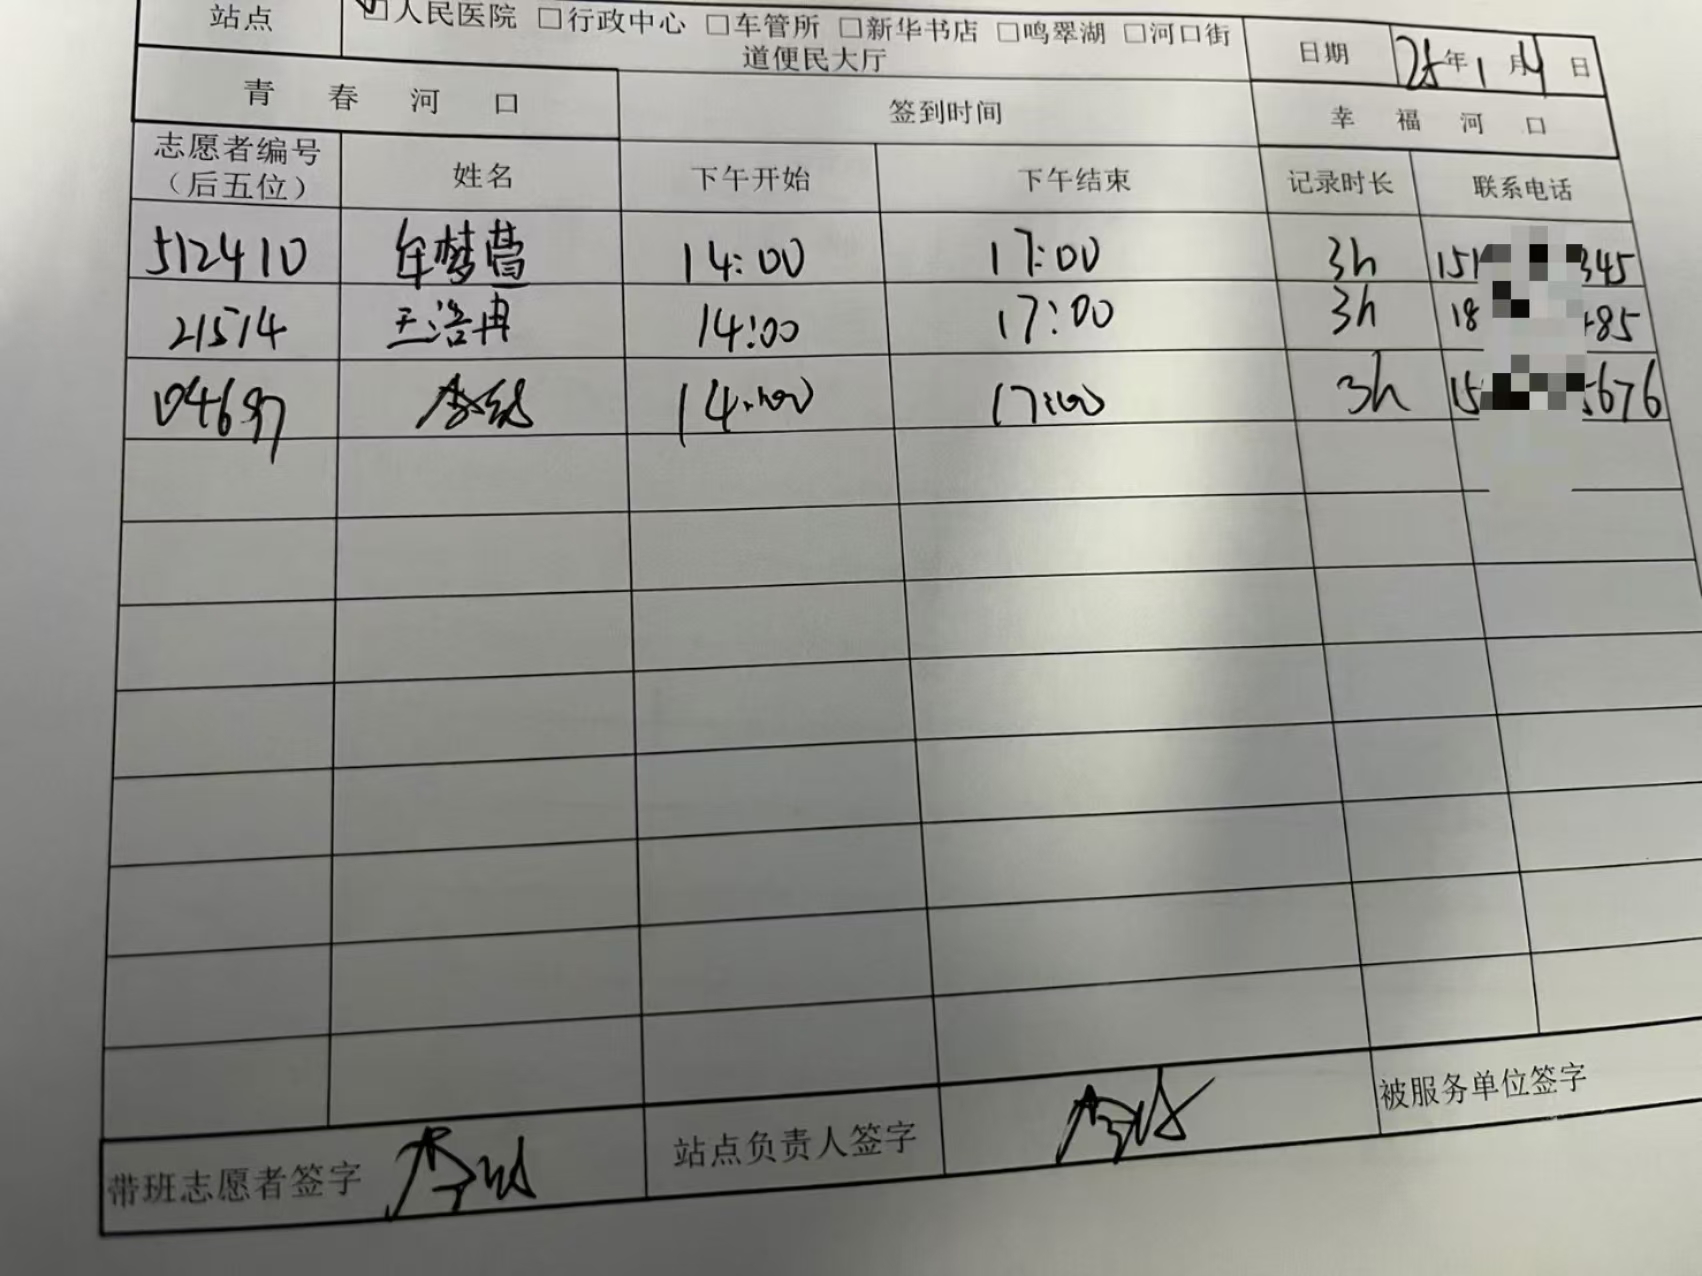 站点 □人民医院 □行政中心 □车管所 □新华书店 □鸣翠湖 □河口街道便民大厅 日期 25年1月4日
青春河口 签到时间 幸福河口
志愿者编号（后五位） 姓名 下午开始 下午结束 记录时长 联系电话
512410 牟梦萱 14:00 17:00 3h 151 345
21514 王浩冉 14:00 17:00 3h 18 485
04697 14:00 17:00 3h 15 5676
带班志愿者签字 站点负责人签字 被服务单位签字